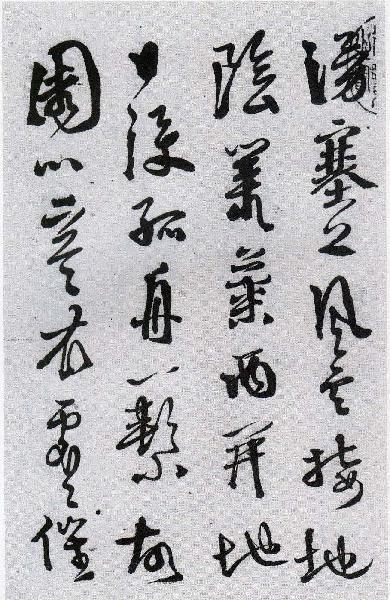 湧塞上風雲接地
陰叢菊兩開他
日淚孤舟一繫故
園心寒衣處々催